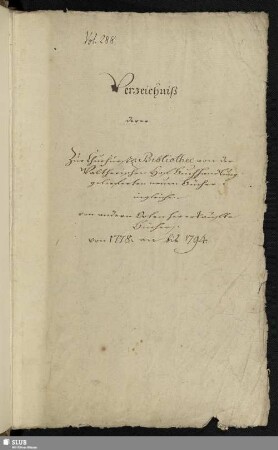 Vol. 288.
Verzeichniß
derer
Zur Churfürstl. Bibliothec von der
Waltherischen Hof Buchhandlung
gelieferten neuen Bücher
ingleichen
von andern Orten her erkaufte
Bücher,
von 1778. bis 1794.
SLUB